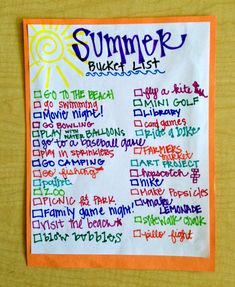 Summer
Bucket List
GO TO THE BEACH
go swimming
Movie night!
GO BOWLING
PLAY WITH WATER BALLOONS
go to a baseball game
play in sprinklers
GO CAMPING
Go fishing
paint
ZOO
PICNIC at PARK
Family game night!
visit the beach
blow bubbles
fly a kite
MINI GOLF
LIBRARY
card games
ride a bike
FARMERS market
ART PROJECT
hopscotch
hike
Make Popsicles
make LEMONADE
sidewalk chalk
pillo fight